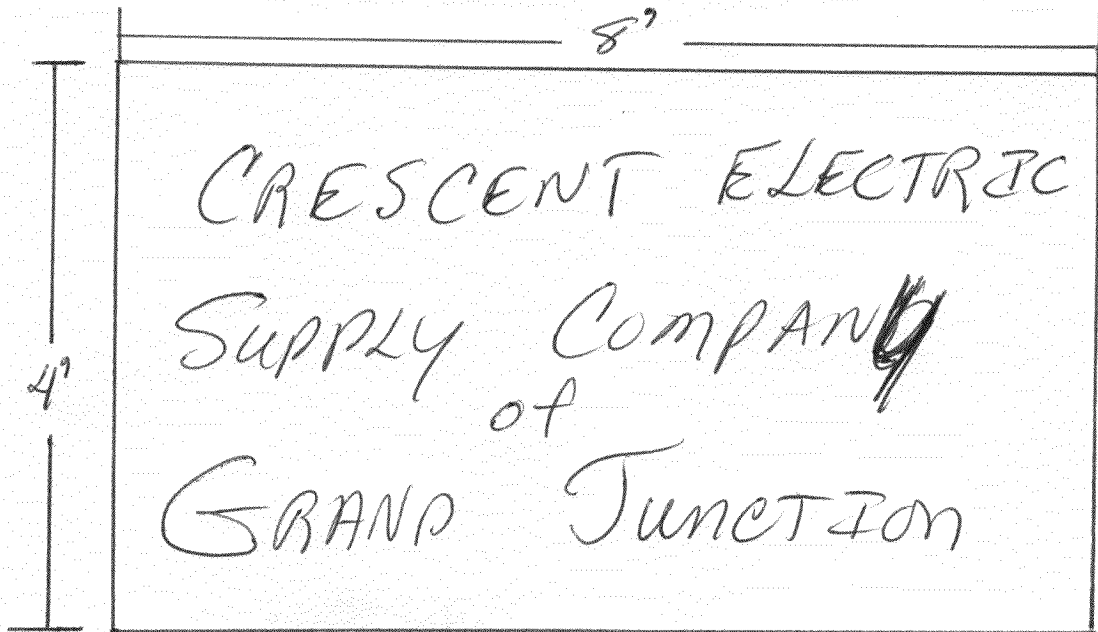 8'
CRESCENT ELECTRIC
SUPPLY COMPANY
4'
of
GRAND JUNCTION